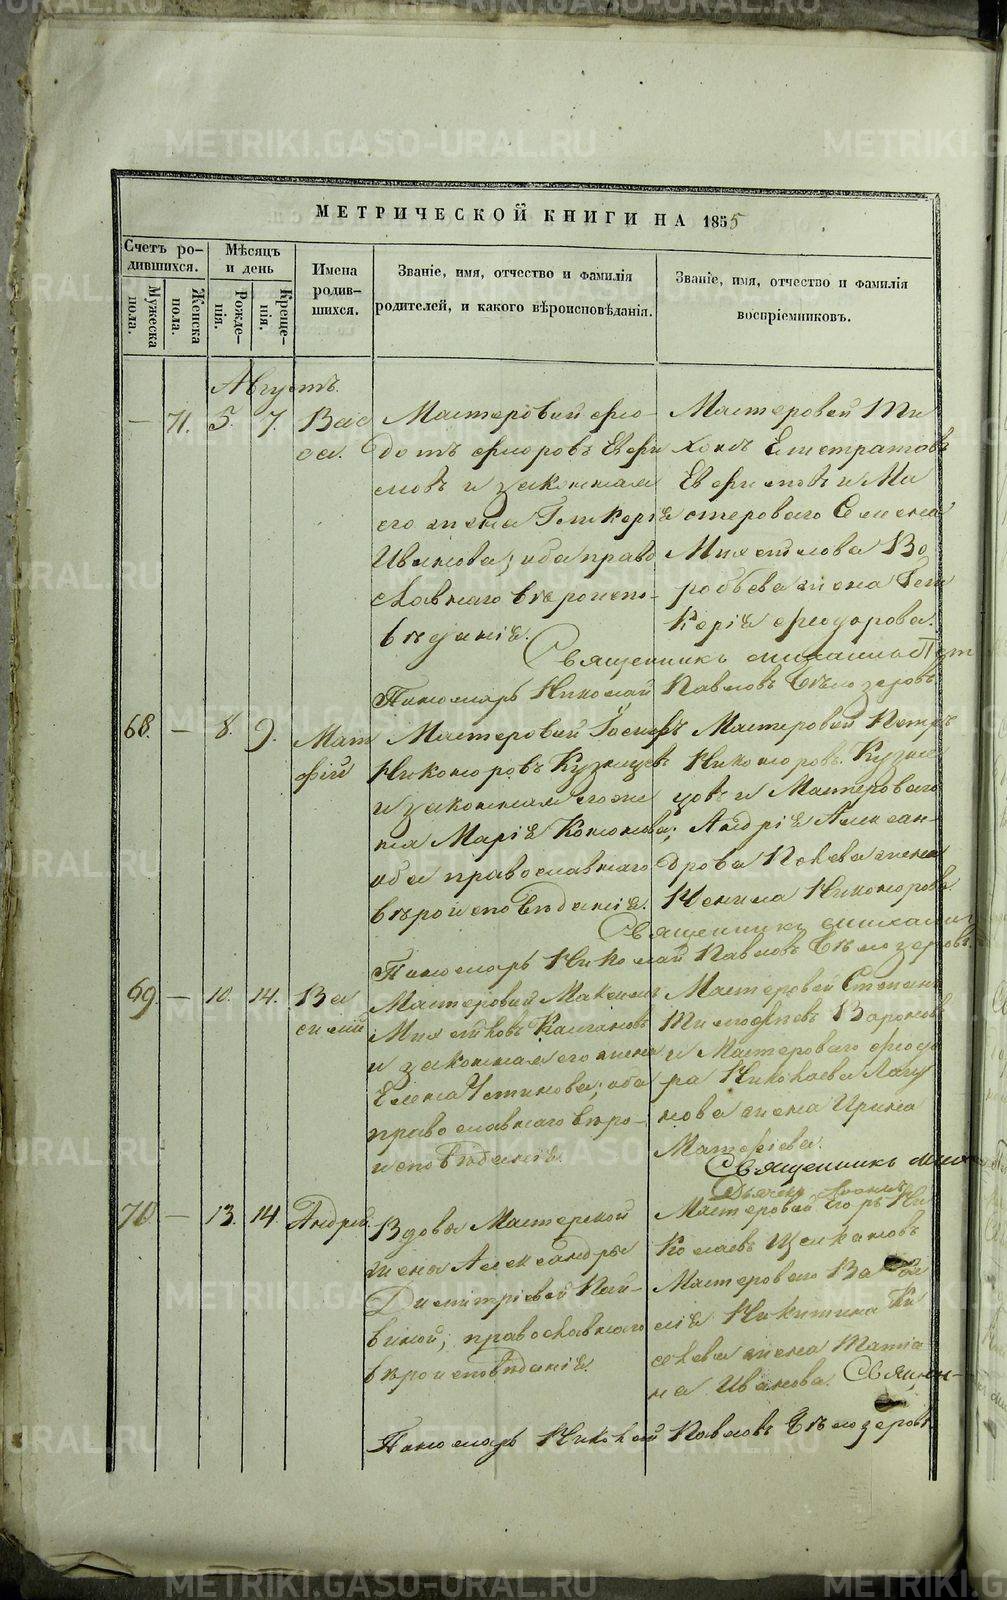 METRIKI.GASO-URAL.RU
МЕТРИЧЕСКОЙ КНИГИ НА 1855
Счетъ родившихся.
Мужеска пола.
Женска пола.
Мѣсяцъ и день
Рожденія.
Крещенія.
Имена родившихся.
Званіе, имя, отчество и фамилія
родителей, и какого вѣроисповѣданія.
Званіе, имя, отчество и фамилія
воспріемниковъ.
Августъ.
— 71. 5. 7. Васса.
Мастеровый Фео-
дотъ Фиоровъ Евфи
мовъ и законная
его жена Гликерія
Иванова; оба право
славнаго вѣроиспо-
вѣданія.
Мастеровой Ти
хонъ Елистратовъ
Евфимовъ и Ма
стероваго Семена
Михайлова Во
робьева жена Гли
керія Феодорова.
Священникъ Михаилъ
Пономарь Николай Павловъ Бѣлозеровъ
68. — 8. 9. Матфій
Мастеровый Іосифъ
Никоноровъ Кузнецовъ
и законная его же
на Марія Кононова;
оба православнаго
вѣроисповѣданія.
Мастеровой Петръ
Никоноровъ Кузне
цовъ и Мастероваго
Андрія Алексан-
дрова жена
Никонорова
Священникъ Михаилъ
Пономарь Николай Павловъ Бѣлозеровъ.
69. — 10. 14. Василій
Мастеровый Максимъ
и законная его жена
Елена Устинова; оба
православнаго вѣро-
исповѣданія.
Мастеровой Степанъ
Тимофѣевъ
и Мастероваго Феодо
ра Николаева
нова жена Ирина
Матфіева.
Священникъ
Дьячекъ
70. — 13. 14. Андрей.
Вдовы Мастерской
жены Александры
Димитріевой
православнаго
вѣроисповѣданія.
Мастеровой Егоръ Ни
колаевъ
Мастероваго Васи
лія Никитина Ки
селева жена Татіа
на Иванова. Священ-
Пономарь Николай Павловъ Бѣлозеровъ